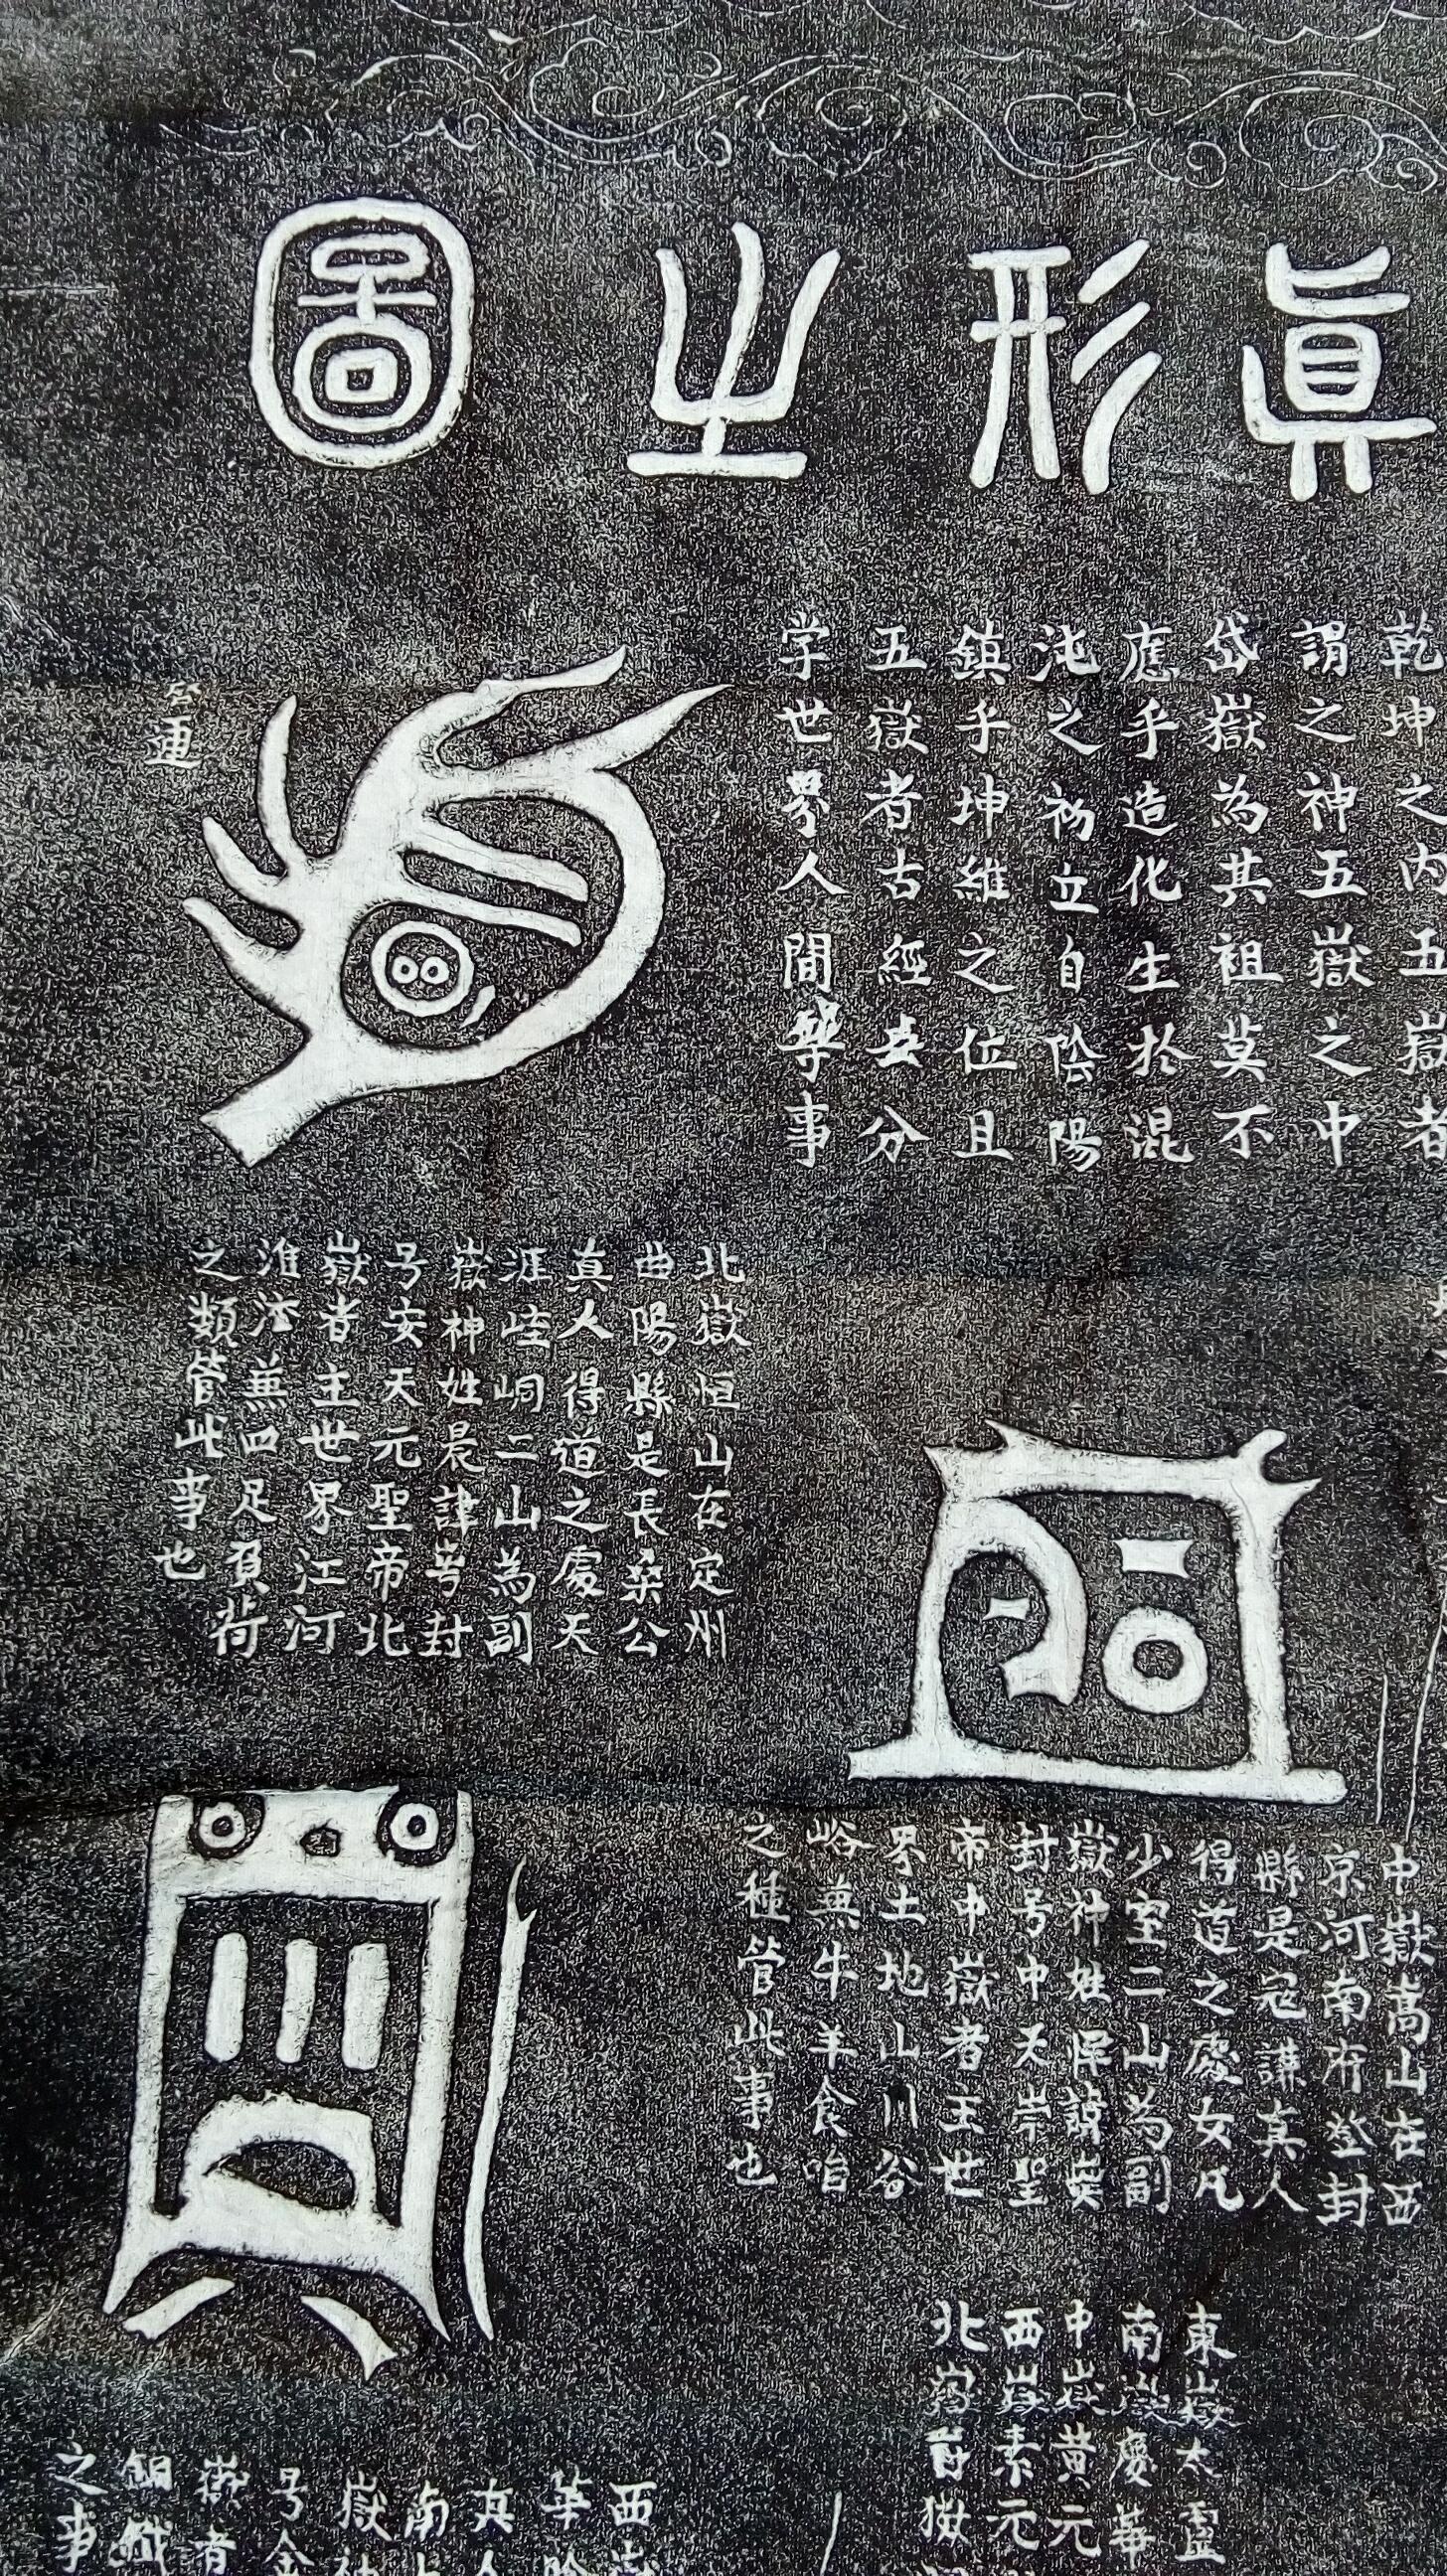 眞形之圖
乾坤之内五嶽者
謂之神五嶽之中
岱嶽為其祖莫不
應乎造化生於混
沌之初立自陰陽
鎮乎坤維之位且
五嶽者古經云分
掌世界人間等事
北嶽恒山在定州
曲陽縣是長桑公
真人得道之處天
涯崆峒二山為副
嶽神姓晨諱咢封
号安天元聖帝北
嶽者主世界江河
淮濟兼四足負荷
之類管此事也
中嶽嵩山在西
京河南府登封
縣是寇謙真人
得道之處女几
少室二山為副
嶽神姓惲諱
封号中天崇聖
帝中嶽者主世
界土地山川谷
峪兼牛羊食啗
之種管此事也
東嶽太靈
南嶽慶華
中嶽黄元
西嶽素元
北嶽
西嶽
華陰
真人
南
嶽神
号金
嶽者
銅鐵
之事